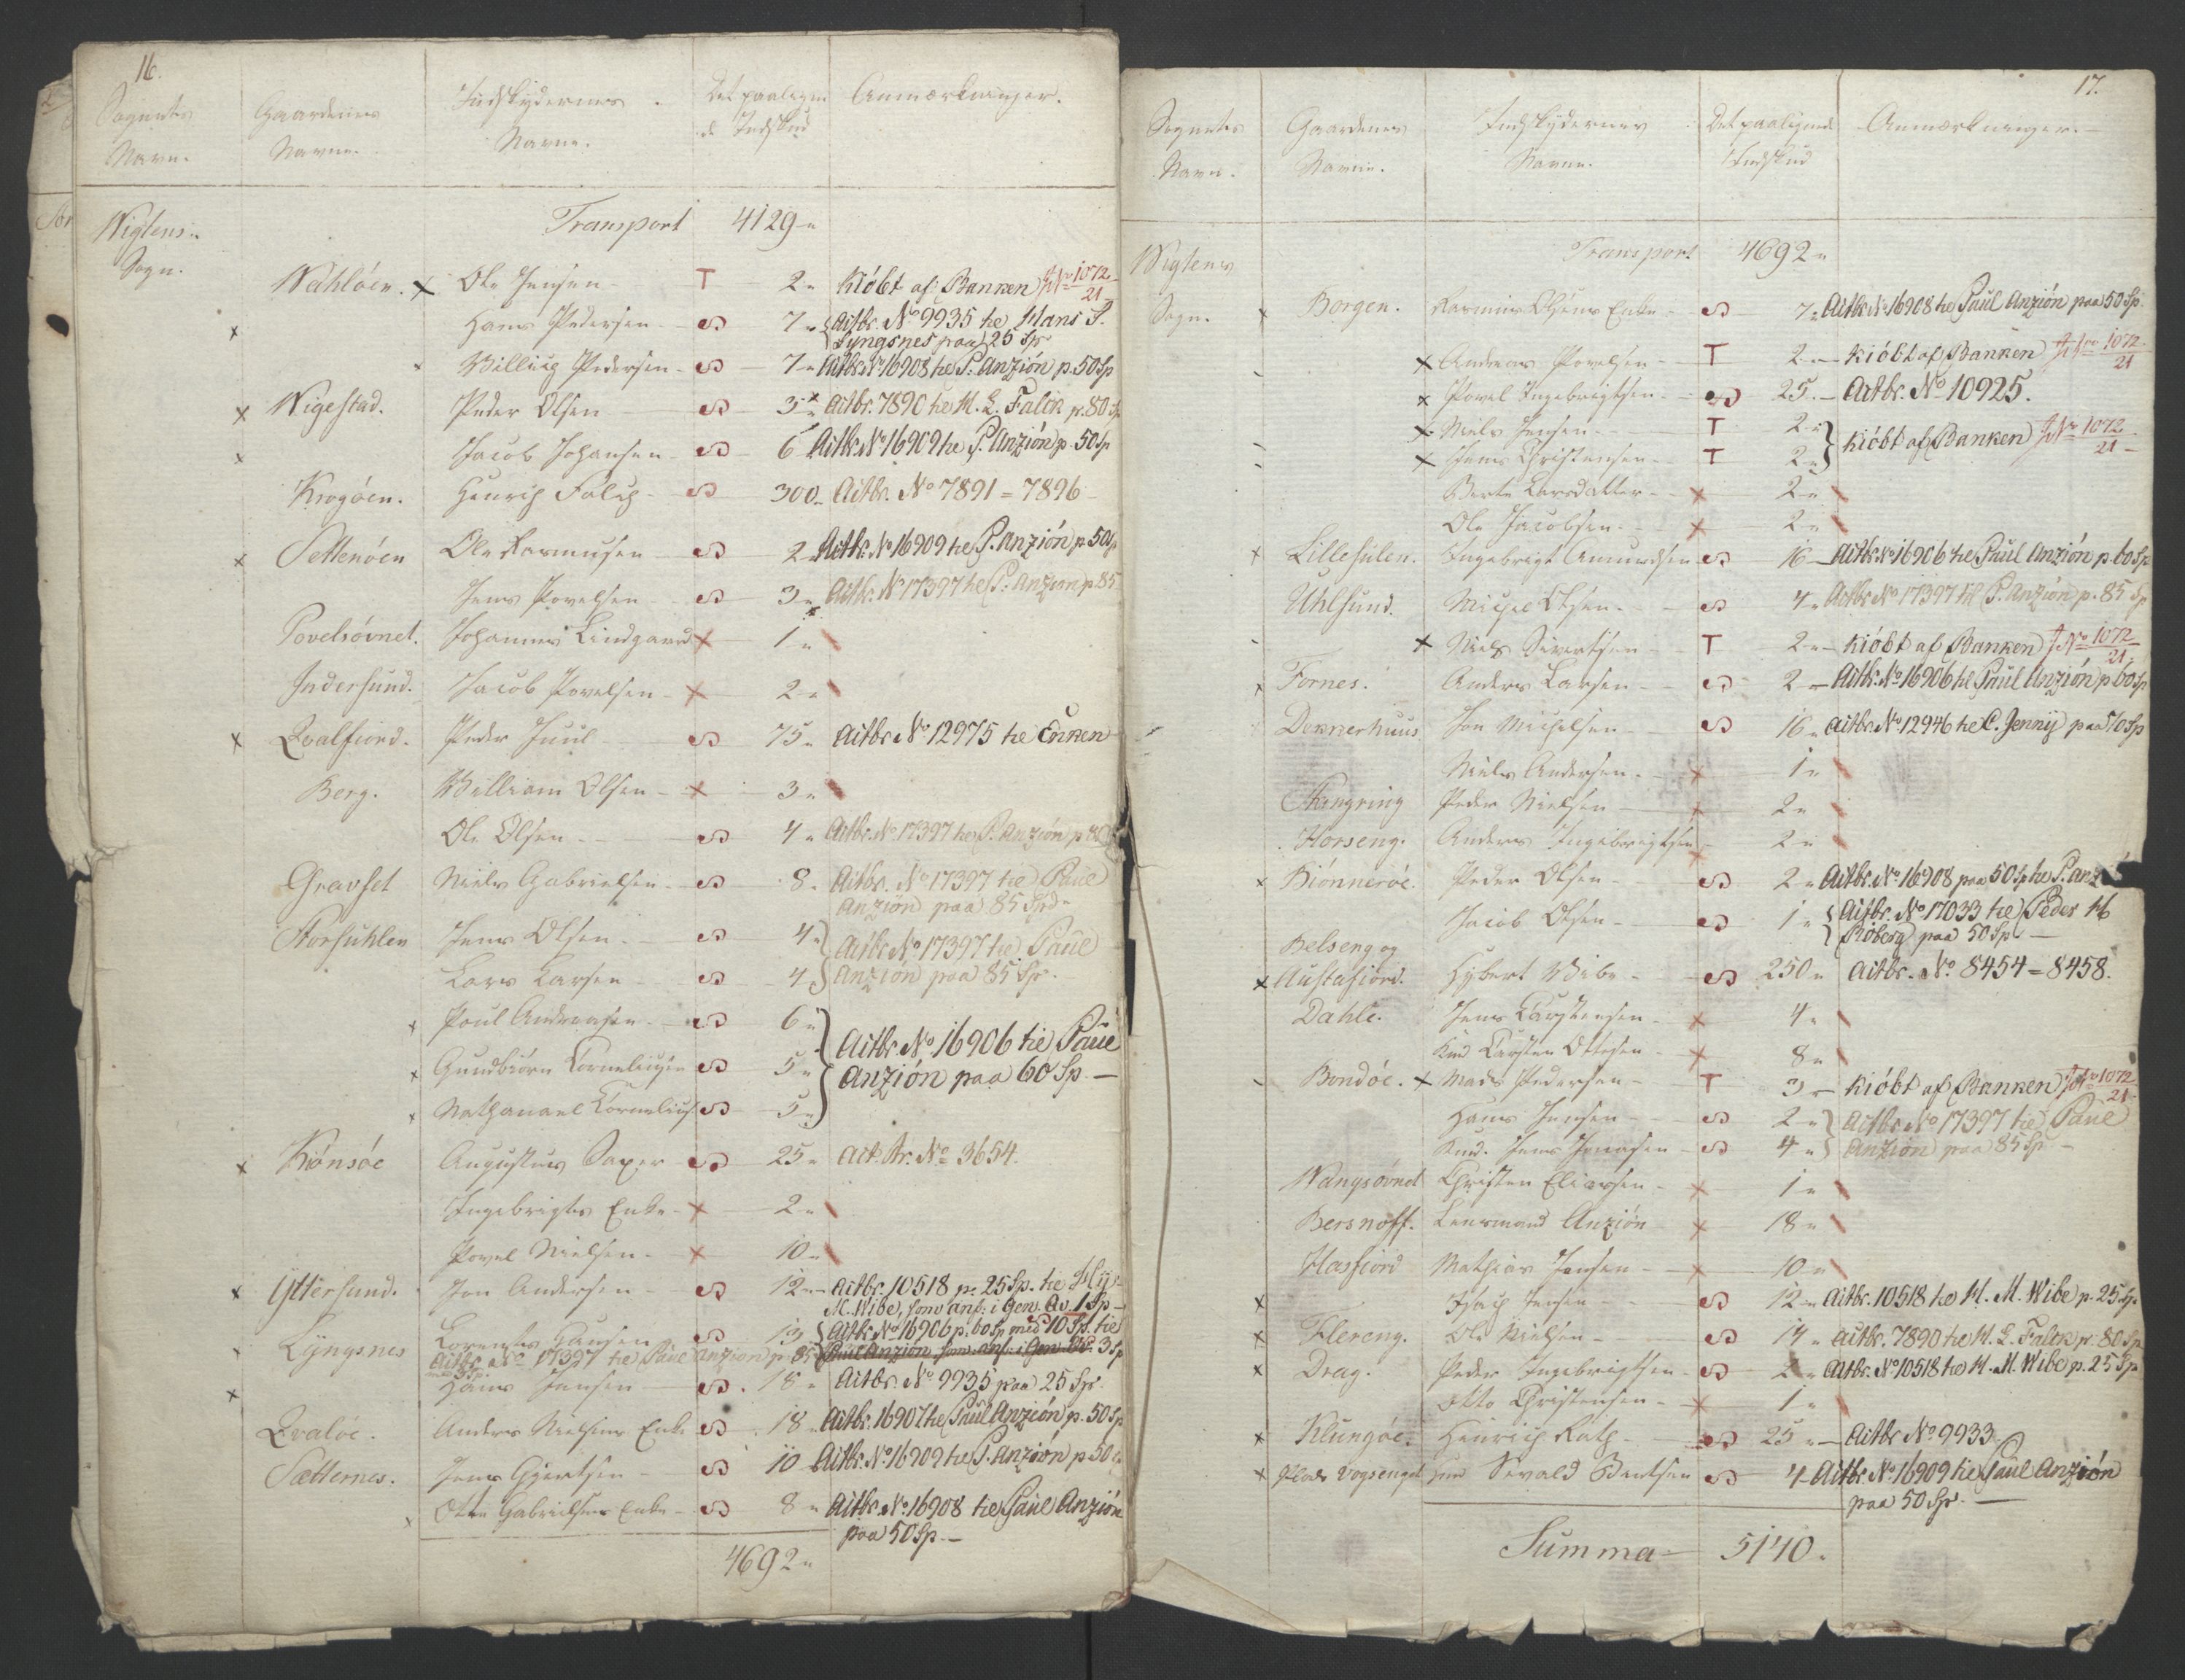 16.
Sognets Navn. Gaardenes Navne. Indskydernes Navne. Det paalignede Indskud Anmærkninger.
Wigtens Sogn. Transport 4129 "
Wahløen. x Ole Jensen T 2 " Kiöbt af Banken No 1072/21
x Hans Pedersen S 7 " Actbr. No 9935 til Hans J.
Lyngsnes paa 25 Sp
Willius Pedersen S 7 " Actbr. No 16908 til P. Anziön p. 50 Sp
x Wigestad. Peder Olsen S 3 " Actbr. 7890 til M. L. Falck p. 80 Sp
x Jacob Johansen S 6 " Actbr. No 16909 til P. Anziön p. 50 Sp
Krogöen. Henrich Falch S 300 " Actbr. No 7891 = 7896
x Settenöen Ole Rasmusen S 2 " Actbr. No 16909 til P. Anziön p. 50 Sp
Jens Povelsen S 3 " Actbr. No 17397 til P. Anziön p. 85
Povelsövnet. Johannes Lindgaard x 1 "
Indersund. Jacob Povelsen x 2 "
x Qvalfiord. Peder Juul S 75 " Actbr. No 12975 til Enken
Berg. William Olsen x 3 "
Ole Olsen S 4 " Actbr. No 17397 til P. Anziön p. 85
Gravset Niels Gabrielsen S 8 " Actbr. No 17397 til Paul
Anziön paa 85 Spd.
Storsuhlen Jens Olsen S 4 " Actbr. No 17397 til Paul
Lars Larsen S 4 Anziön paa 85 Sp.
x Poul Andreasen S 6 "
x Gundbiörn Corneliusen S 5 " Actbr. No 16906 til Paul
x Nathanael Cornelius S 5 " Anziön paa 60 Sp. —
x Kiönsöe Augustus Saxer S 25 " Act. br. No 3654.
Ingebrigts Enke x 2 "
Povel Nielsen x 10 "
x Yttersund. Jon Andersen S 12 " Actbr. 10518 p. 25 Sp. til Hys
M. Wibe, som anf: i Gen. Av. 1 Sp —
Lyngsnes Lorentz Hansen S 13 Actbr. No 16906 p. 60 Sp med 10 Sp. til
Actbr. No 17397 til Paul Anziön p. 85 Paul Anziön som anf: i Gen. Av. 3 Sp
med 3 Sp.
x Hans Jensen S 18 " Actbr. No 9935 paa 25 Sp.
Qvalöe. Anders Nielsens Enke S 18 " Actbr. 16907 til Paul Anziön p. 50 Sp
Sætternes. Jens Giertsen S 10 Actbr. No 16909 til P. Anziön p. 50
x Otte Gabrielsens Enke S 8 " Actbr. No 16908 til Paul Anziön
paa 50 Sp. —
4692 "
17.
Sognets Navn. Gaardenes Navne. Indskydernes Navne. Det paalignede Indskud Anmærkninger.
Wigtens Sogn. Transport 4692 "
x Borgen. Rasmus Olsens Enke S 7 " Actbr. No 16908 til Paul Anziön paa 50 Sp.
x Andreas Povelsen T 2 " Kiöbt af Banken No 1072/21
x Povel Ingebrigtsen S 25. Actbr. No 10925.
x Niels Jensen T 2 "
x Jens Christensen T 2 " Kiöbt af Banken No 1072/21
Berte Larsdatter x 2 "
Ole Jacobsen x 2 "
x Lillesulen. Ingebrigt Amundsen S 16 Actbr. No 16906 til Paul Anziön p. 60 Sp
Uhlsund. Michel Olsen S 4 " Actbr. No 17397 til P. Anziön p. 85 Sp
x Niels Sivertsen T 2 " Kiöbt af Banken No 1072/21
x Fornes. Anders Larsen S 2 Actbr. No 16906 til Paul Anziön p. 60 Sp
Dekkerhuus Jon Michelsen S 16 " Actbr. No 12946 til C. Jenny paa 70 Sp
Niels Andersen x 1 "
Stangring Peder Nielsen x 2 "
Horseng. Anders Ingebrigtsen x 2 "
x Biönneröe. Peder Olsen S 2 " Actbr. No 16908 paa 50 Sp til P. Anz
Jacob Olsen S 1 " Actbr. No 17033 til Peder M
Roberg paa 50 Sp —
Belseng og
x Austafiord. Hybert Wibe S 250 " Actbr. No 8454 = 8458.
Dahle. Jens Carstensen x 4 "
Knd Carsten Ottesen x 8 "
Bondöe. x Mads Pedersen T 3 Kiöbt af Banken No 1072/21
Hans Jensen S 2 " Actbr. No 17397 til Paul
Knd. Jens Jonasen S 4 " Anziön paa 85 Sp —
Wangsövnet Christen Eliasen x 1 "
Bersnoff. Lensmand Anziön x 18 "
Hasfiord Mathias Jensen x 10 "
x Isach Jensen S 12 " Actbr. 10518 til H. M. Wibe p. 25 Sp.
x Flereng. Ole Nielsen S 14 " Actbr. 7890 til M. L. Falck p. 80 Sp
x Drag. Peder Ingebrigtsen S 2 " Actbr. No 10518 til H. M. Wibe p. 25 Sp
Otto Christensen x 1 "
x Klungöe. Henrich Rath S 25 " Actbr No 9933.
x Plads Vogsenget Knd Sivald Bentsen S 4 Actbr. No 16909 til Paul Anziön
paa 50 Sp. —
Summa 5140.